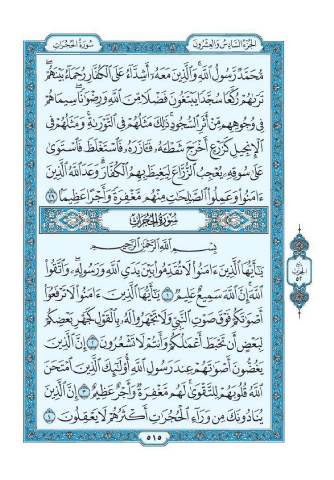 الجزء السادس والعشرون سورة الحجرات
مُّحَمَّدٌ رَّسُولُ اللَّهِ وَالَّذِينَ مَعَهُ أَشِدَّاءُ عَلَى الْكُفَّارِ رُحَمَاءُ بَيْنَهُمْ
تَرَىٰهُمْ رُكَّعًا سُجَّدًا يَبْتَغُونَ فَضْلًا مِّنَ اللَّهِ وَرِضْوَانًا سِيمَاهُمْ
فِي وُجُوهِهِم مِّنْ أَثَرِ السُّجُودِ ذَٰلِكَ مَثَلُهُمْ فِي التَّوْرَىٰةِ وَمَثَلُهُمْ فِي
الْإِنجِيلِ كَزَرْعٍ أَخْرَجَ شَطْـَٔهُ فَـَٔازَرَهُ فَاسْتَغْلَظَ فَاسْتَوَىٰ
عَلَىٰ سُوقِهِ يُعْجِبُ الزُّرَّاعَ لِيَغِيظَ بِهِمُ الْكُفَّارَ وَعَدَ اللَّهُ الَّذِينَ
ءَامَنُوا وَعَمِلُوا الصَّٰلِحَٰتِ مِنْهُم مَّغْفِرَةً وَأَجْرًا عَظِيمًا ٢٩
سورة الحجرات
بِسْمِ اللَّهِ الرَّحْمَٰنِ الرَّحِيمِ
يَٰٓأَيُّهَا الَّذِينَ ءَامَنُوا لَا تُقَدِّمُوا بَيْنَ يَدَيِ اللَّهِ وَرَسُولِهِ وَاتَّقُوا
اللَّهَ إِنَّ اللَّهَ سَمِيعٌ عَلِيمٌ ١ يَٰٓأَيُّهَا الَّذِينَ ءَامَنُوا لَا تَرْفَعُوا
أَصْوَٰتَكُمْ فَوْقَ صَوْتِ النَّبِيِّ وَلَا تَجْهَرُوا لَهُ بِالْقَوْلِ كَجَهْرِ بَعْضِكُمْ
لِبَعْضٍ أَن تَحْبَطَ أَعْمَٰلُكُمْ وَأَنتُمْ لَا تَشْعُرُونَ ٢ إِنَّ الَّذِينَ
يَغُضُّونَ أَصْوَٰتَهُمْ عِندَ رَسُولِ اللَّهِ أُولَٰئِكَ الَّذِينَ امْتَحَنَ
اللَّهُ قُلُوبَهُمْ لِلتَّقْوَىٰ لَهُم مَّغْفِرَةٌ وَأَجْرٌ عَظِيمٌ ٣ إِنَّ الَّذِينَ
يُنَادُونَكَ مِن وَرَاءِ الْحُجُرَٰتِ أَكْثَرُهُمْ لَا يَعْقِلُونَ ٤
٥١٥